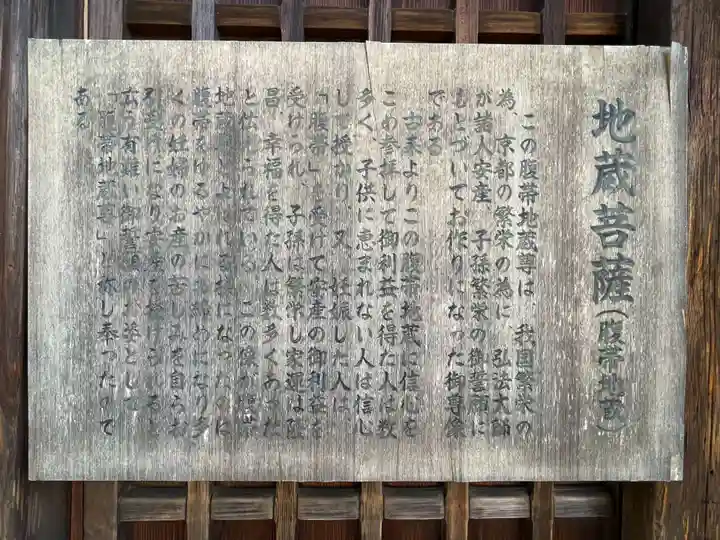 地蔵菩薩（腹帯地蔵）
この腹帯地蔵尊は、我国繁栄の
為、京都の繁栄の為に、弘法大師
が諸人安産、子孫繁栄の御誓願に
もとづいてお作りになった御尊像
である
古来よりこの腹帯地蔵に信心を
こめ参拝して御利益を得た人は数
多く、子供に恵まれない人は信心
して授かり、又、妊娠した人は
「腹帯」を受けて安産の御利益を
受けられ、子孫は繁栄し家運は隆
昌、幸福を得た人は数多くあった
と伝えられている。この俵が
地蔵尊とよばれる様になったのは
腹帯をゆるやかにお締めになり多
くの妊婦のお産の苦しみを自らお
引受けになり安産を授けられると
言う有難い御誓願のお姿として
「腹帯地蔵尊」と称し奉ったので
ある